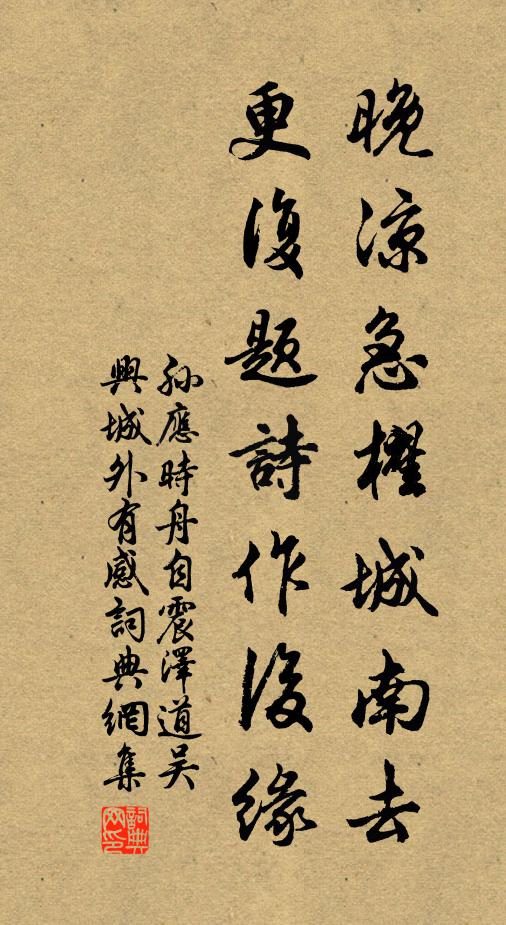 晚涼急櫂城南去
更復題詩作後緣
孫應時舟自震澤道吳
興城外有感詞典網集
詞典
网印